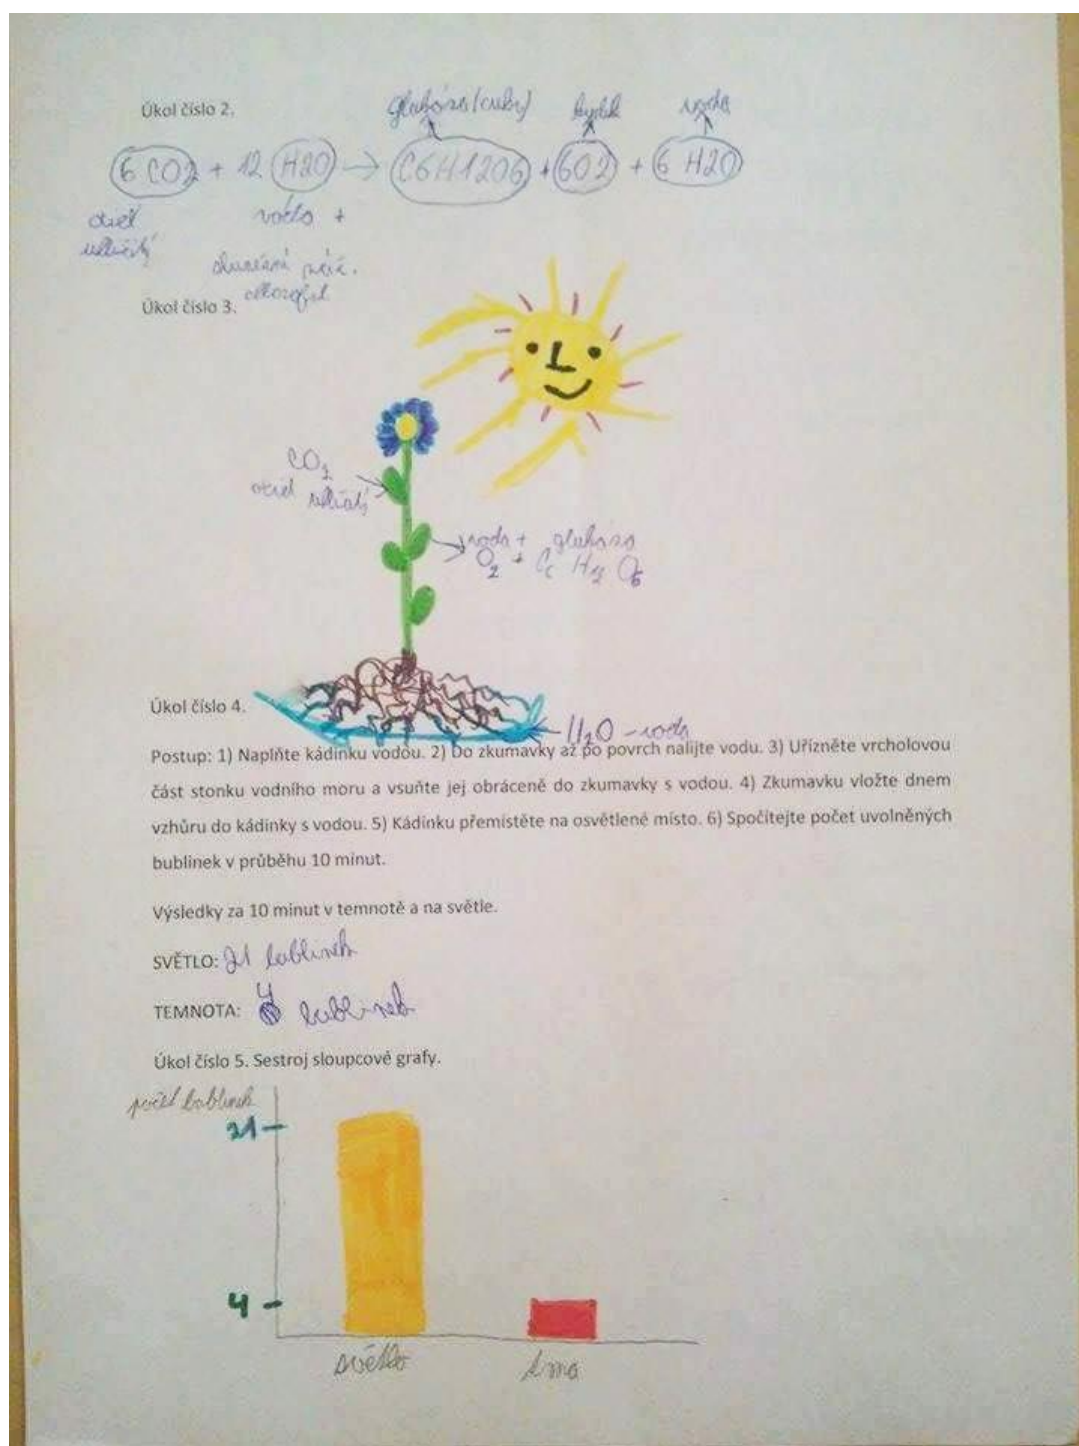 Úkol číslo 2.
glukóza (cukr) kyslík voda
6 CO2 + 12 H2O → C6H12O6 + 6O2 + 6 H2O
oxid voda +
uhličitý
sluneční zář.
chlorofyl
Úkol číslo 3.
CO2
oxid uhličitý
voda + glukóza
O2 + C6 H12 O6
Úkol číslo 4.
H2O - voda
Postup: 1) Naplňte kádinku vodou. 2) Do zkumavky až po povrch nalijte vodu. 3) Uřízněte vrcholovou
část stonku vodního moru a vsuňte jej obráceně do zkumavky s vodou. 4) Zkumavku vložte dnem
vzhůru do kádinky s vodou. 5) Kádinku přemístěte na osvětlené místo. 6) Spočítejte počet uvolněných
bublinek v průběhu 10 minut.
Výsledky za 10 minut v temnotě a na světle.
SVĚTLO: 21 bublinek
TEMNOTA: 4 bublinek
Úkol číslo 5. Sestroj sloupcové grafy.
počet bublinek
21
4
světlo tma